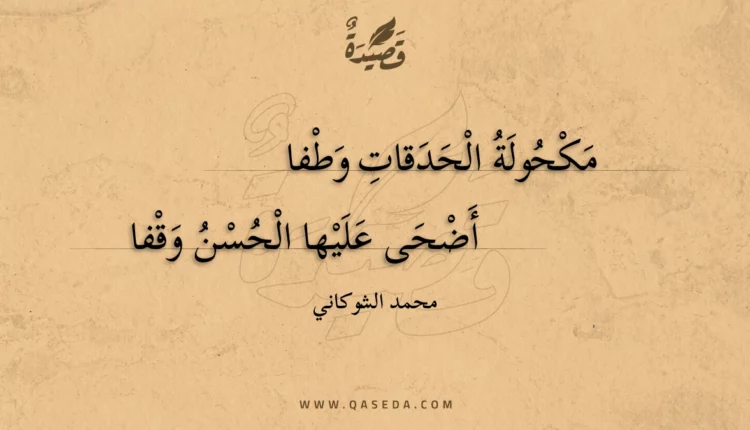 قَصِيْدَةٌ
مَكْحُولَةُ الْحَدَقاتِ وَطْفا
أَضْحَى عَلَيْها الْحُسْنُ وَقْفا
محمد الشوكاني
WWW.QASEDA.COM